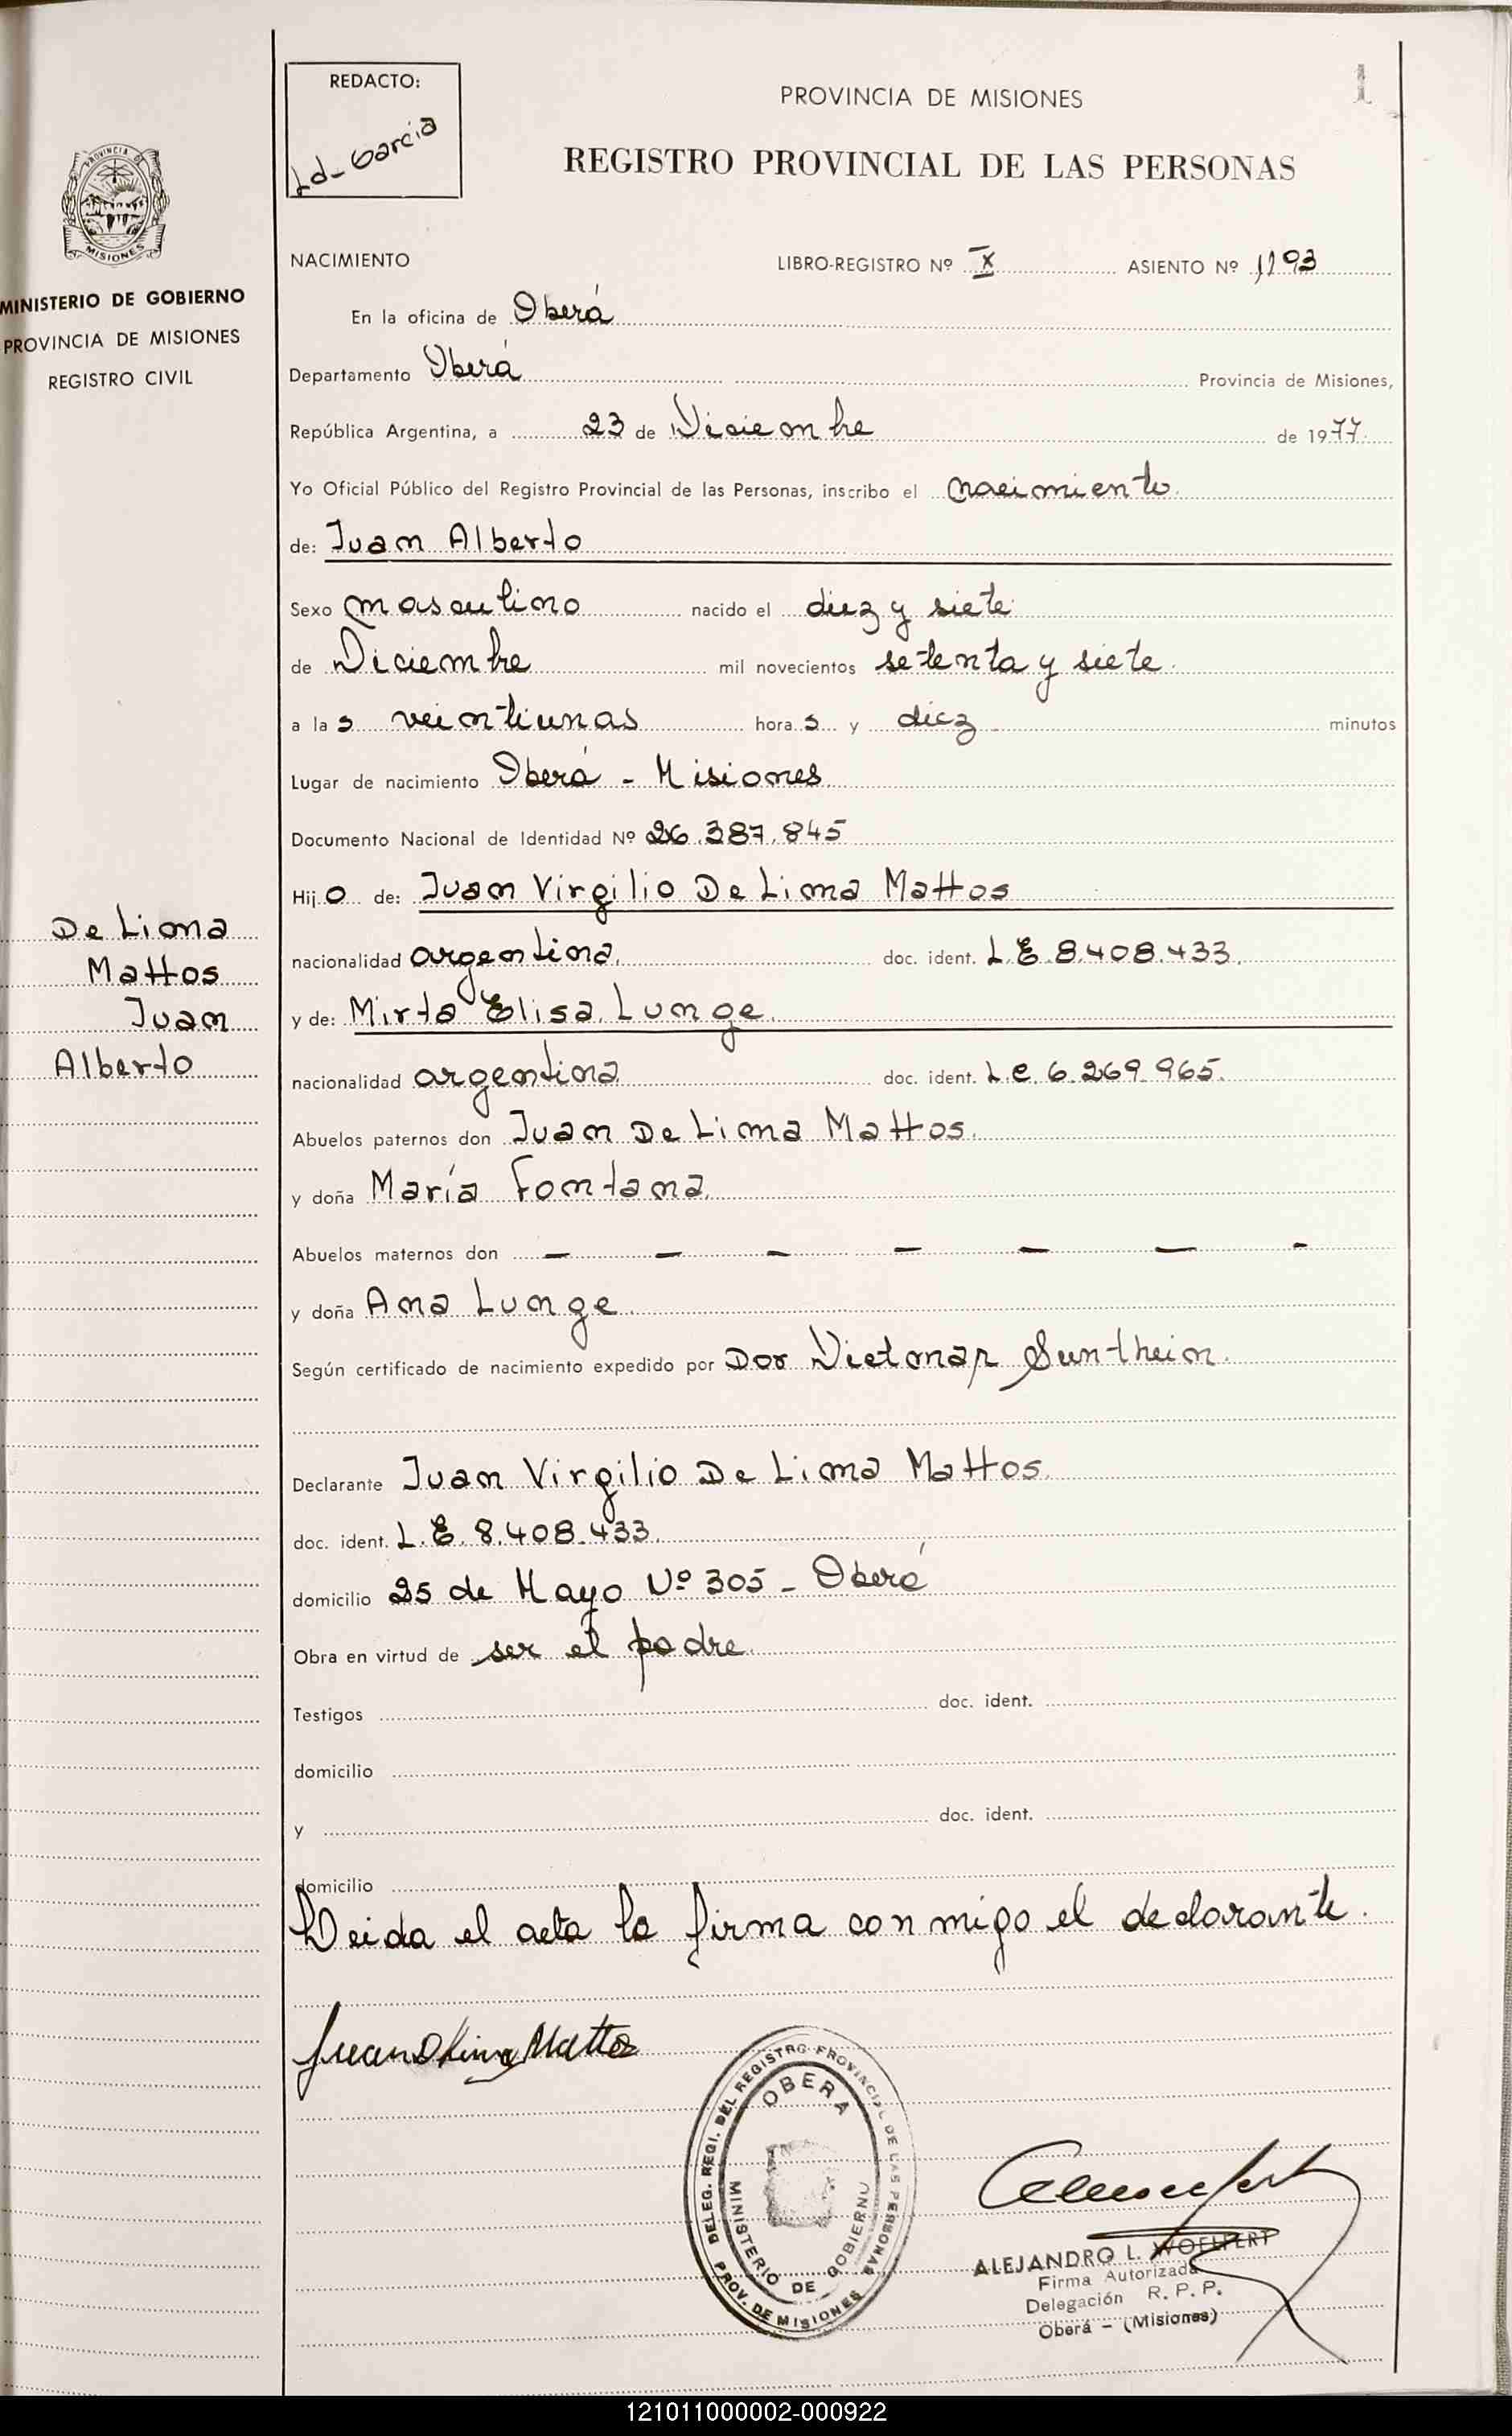 1
REDACTO:
Ld_ Garcia
PROVINCIA DE MISIONES
REGISTRO PROVINCIAL DE LAS PERSONAS
PROVINCIA DE
MISIONES
MINISTERIO DE GOBIERNO
PROVINCIA DE MISIONES
REGISTRO CIVIL
NACIMIENTO LIBRO-REGISTRO Nº X ASIENTO Nº 1193
En la oficina de Oberá
Departamento Oberá Provincia de Misiones,
República Argentina, a 23 de Diciembre de 1977.
Yo Oficial Público del Registro Provincial de las Personas, inscribo el nacimiento.
de: Juan Alberto
Sexo masculino nacido el diez y siete
de Diciembre mil novecientos setenta y siete.
a las veintiunas horas y diez minutos
Lugar de nacimiento Oberá - Misiones
Documento Nacional de Identidad Nº 26.387.845
Hijo de: Juan Virgilio De Lima Mattos
De Lima
Mattos
Juan
Alberto
nacionalidad argentina. doc. ident. L.E 8.408.433.
y de: Mirta Elisa Lunge.
nacionalidad argentina doc. ident. L.C. 6.269.965.
Abuelos paternos don Juan De Lima Mattos.
y doña María Fontana.
Abuelos maternos don — — — — — — -
y doña Ana Lunge.
Según certificado de nacimiento expedido por Dor Dietmar Sunthein.
Declarante Juan Virgilio De Lima Mattos.
doc. ident. L.E. 8.408.433.
domicilio 25 de Mayo Nº 305 - Oberá
Obra en virtud de ser el padre.
Testigos doc. ident.
domicilio
y doc. ident.
domicilio
Leida el acta la firma conmigo el declarante.
Juan D Lima Mattos
DELEG. REGI. DEL REGISTRO PROVINCIAL DE LAS PERSONAS
OBERA
MINISTERIO DE GOBIERNO
PROV. DE MISIONES
ALEJANDRO L. WOELFERT
Firma Autorizada
Delegación R. P. P.
Oberá - (Misiones)
121011000002-000922